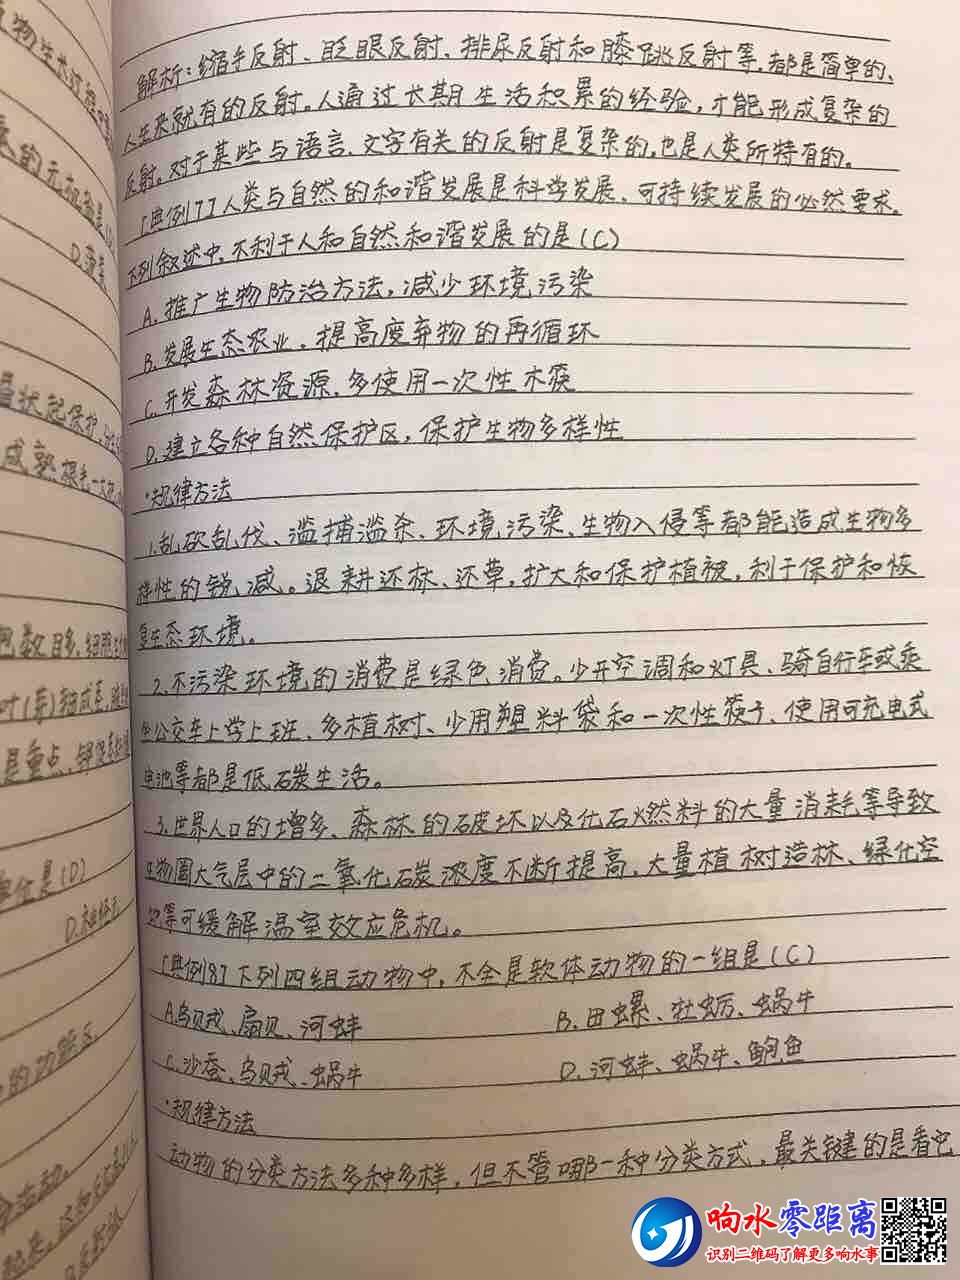 解析：缩手反射、眨眼反射、排尿反射和膝跳反射等，都是简单的、
人生来就有的反射。人通过长期生活积累的经验，才能形成复杂的
反射。对于某些与语言、文字有关的反射是复杂的，也是人类所特有的。
[典例7]人类与自然的和谐发展是科学发展、可持续发展的必然要求。
下列叙述中，不利于人和自然和谐发展的是(C)
A. 推广生物防治方法，减少环境污染
B. 发展生态农业，提高废弃物的再循环
C. 开发森林资源，多使用一次性木筷
D. 建立各种自然保护区，保护生物多样性
·规律方法
1.乱砍乱伐、滥捕滥杀、环境污染、生物入侵等都能造成生物多
样性的锐减。退耕还林、还草，扩大和保护植被，利于保护和恢
复生态环境。
2.不污染环境的消费是绿色消费。少开空调和灯具、骑自行车或乘
坐公交车上学上班、多植树、少用塑料袋和一次性筷子、使用可充电式
电池等都是低碳生活。
3.世界人口的增多、森林的破坏以及化石燃料的大量消耗等导致
生物圈大气层中的二氧化碳浓度不断提高，大量植树造林、绿化空
地等可缓解温室效应危机。
[典例8]下列四组动物中，不全是软体动物的一组是(C)
A.乌贼、扇贝、河蚌 B. 田螺、牡蛎、蜗牛
C.沙蚕、乌贼、蜗牛 D. 河蚌、蜗牛、鲍鱼
·规律方法
动物的分类方法多种多样，但不管哪一种分类方式，最关键的是看它
响水零距离
识别二维码了解更多响水事